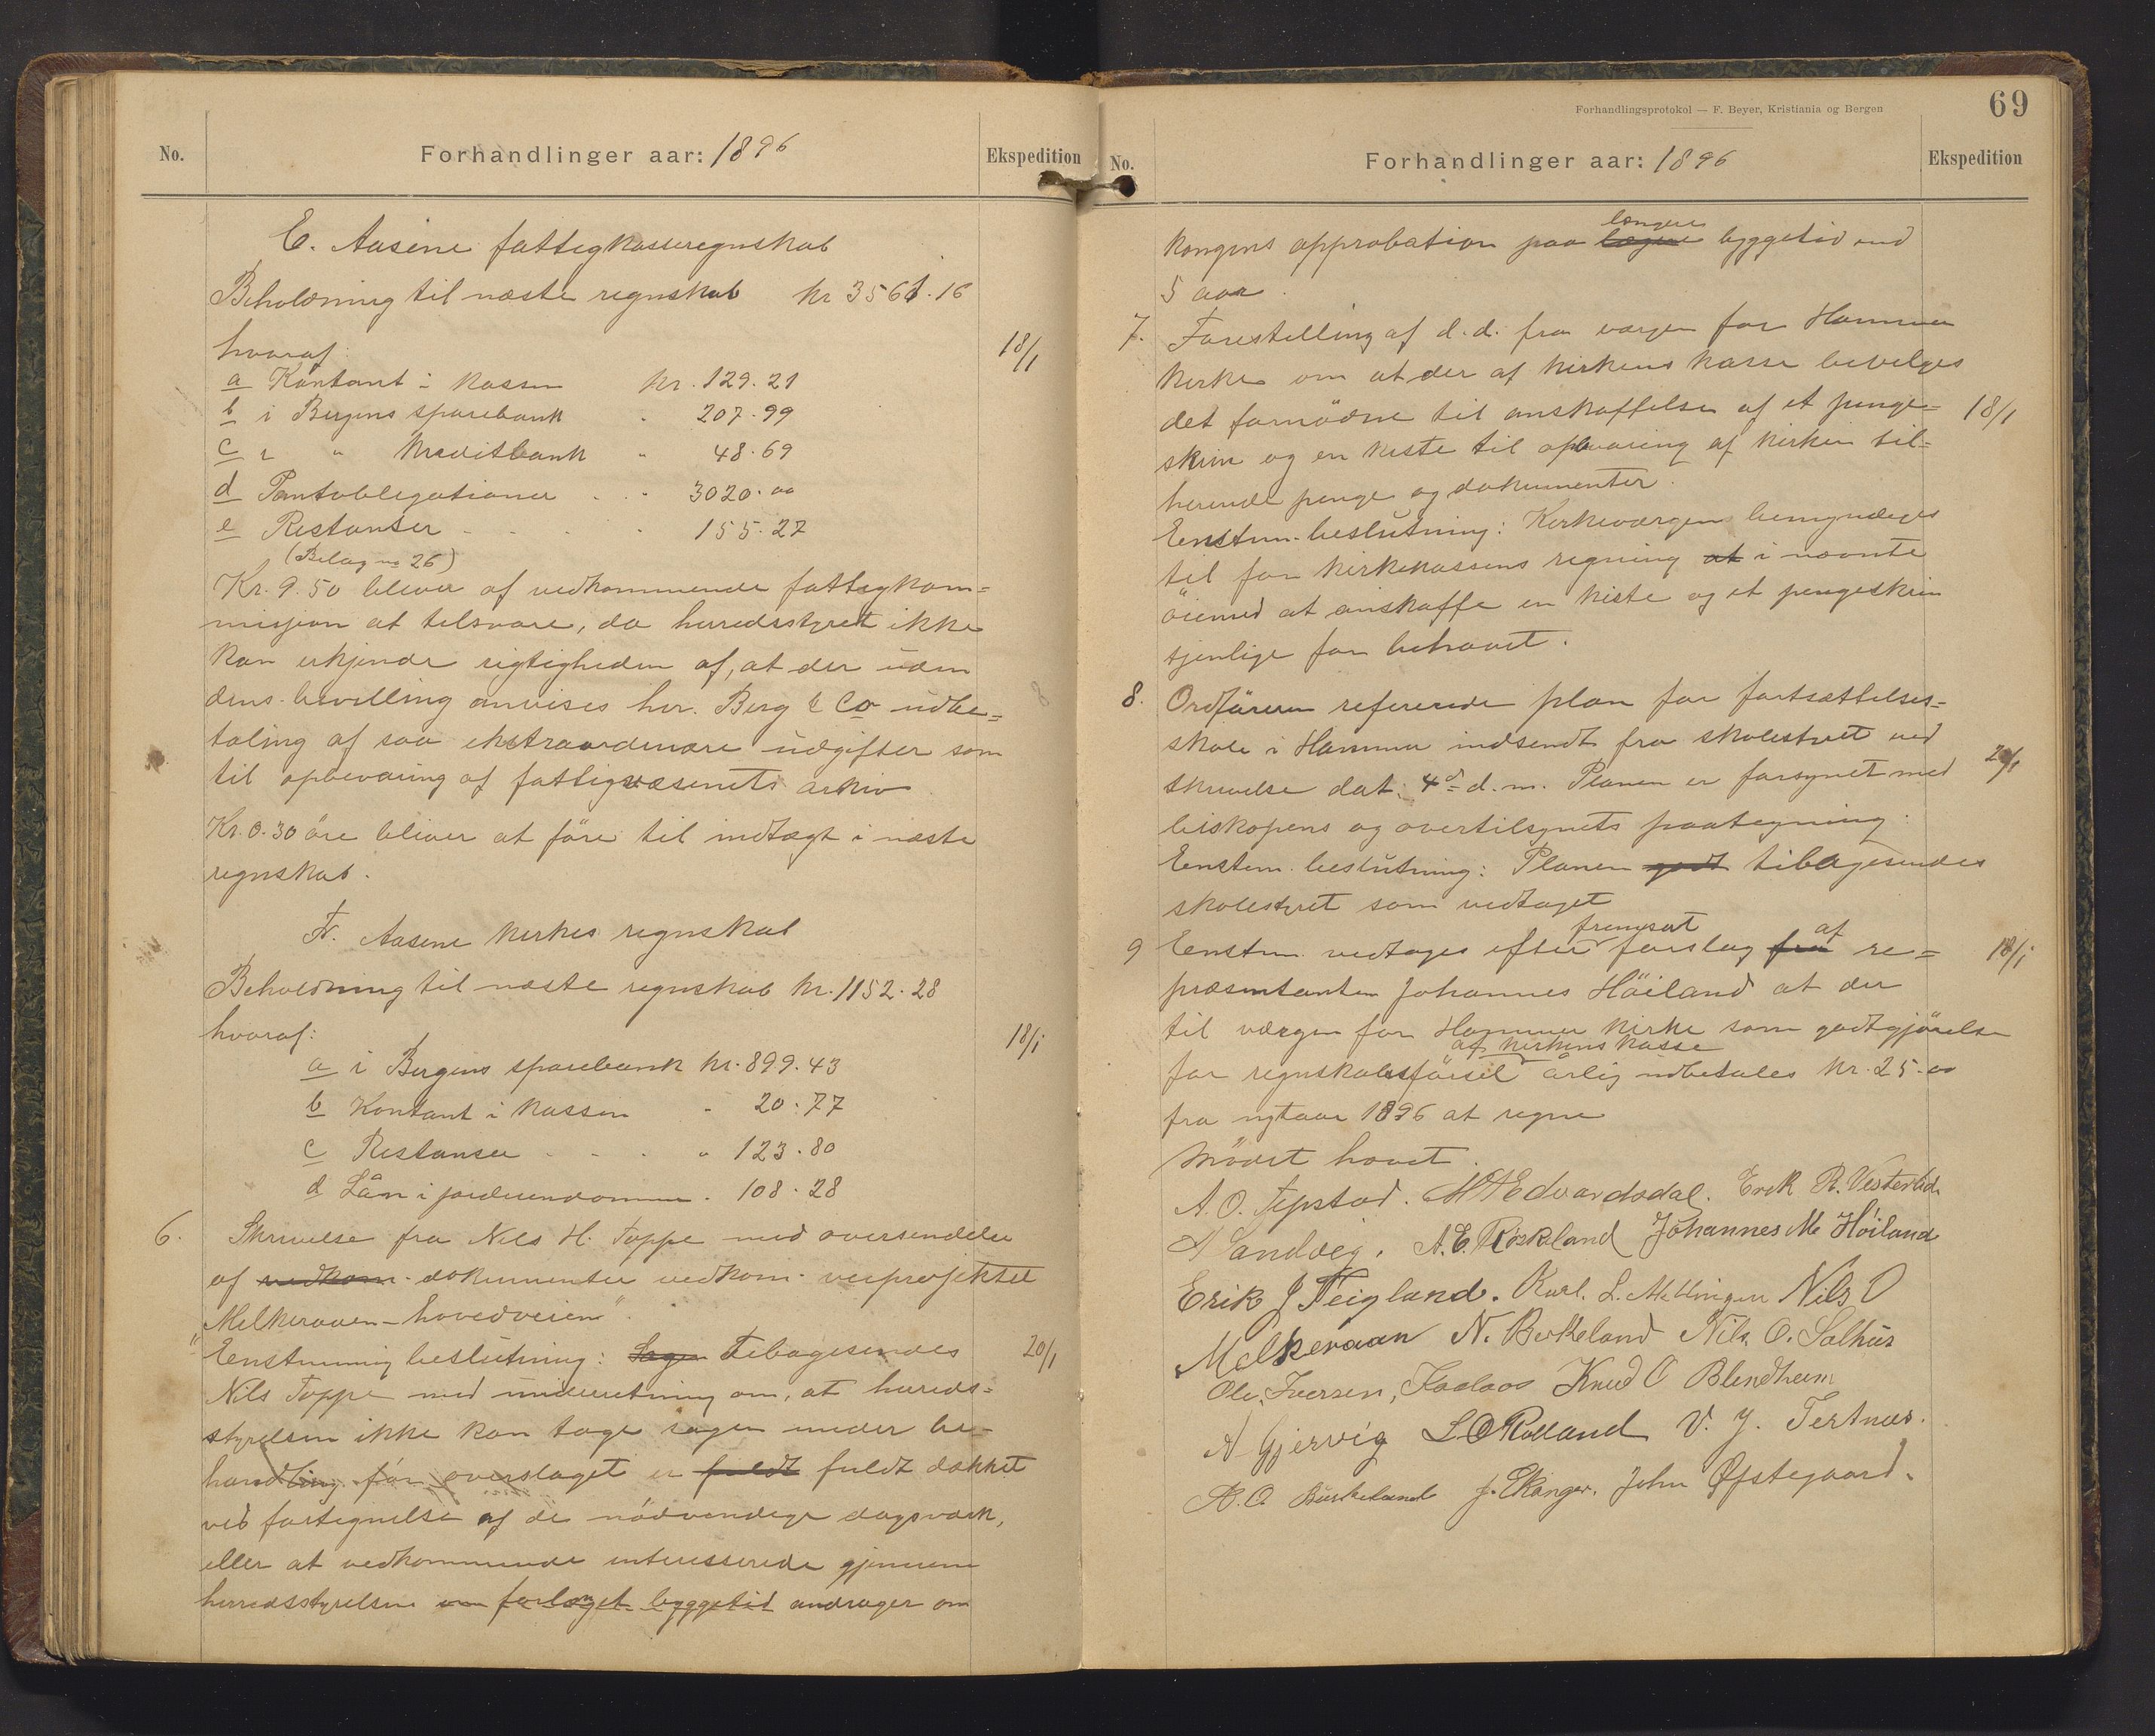 No.
Forhandlinger aar: 1896
Ekspedition
E. Aasene fattigkasseregnskab
Beholdning til næste regnskab kr 3561.16
hvoraf:
18/1
a Kontant i kassen kr. 129.21
b i Bergens sparebank " 207.99
c " " Kreditbank " 48.69
d Pantobligationer . . " 3020.00
e Restanser . . . . " 155.27
(Bilag no 26)
Kr. 9.50 bliver af vedkommende fattigkom=
misjion at tilsvare, da herredsstyret ikke
kan erkjende rigtigheden af, at der uden
dens bevilling anvises hr. Berg & Co udbe=
taling af saa ekstraordinære udgifter som
til opbevaring af fattigvæsenets arkiv
Kr. 0.30 öre bliver at före til indtægt i næste
regnskab.
F. Aasene kirkes regnskab
Beholdning til næste regnskab kr. 1152.28
hvoraf:
18/1
a i Bergens sparebank kr. 899.43
b Kontant i kassen " 20.77
c Restanser . . . " 123.80
d Lån i jordeiendomme . 108.28
6. Skrivelse fra Nils H. Toppe med oversendelse
af vedkom. dokumenter vedkom. veiprojektet
"Melkeraaen-hovedveien"
Enstemmig beslutning: Sagen Tilbagesendes
20/1
Nils Toppe med underretning om, at hereds=
styrelsen ikke kan tage sagen under be=
handling för overslaget er fuldt fuldt dækket
ved fortegnelse af de nödvendige dagsværk,
eller at vedkommende interesserede gjennem
herredsstyrelsen om forlænget byggetid andrager om
Forhandlingsprotokol — F. Beyer, Kristiania og Bergen
69
No.
Forhandlinger aar: 1896
Ekspedition
længere
kongens approbation paa længere byggetid end
5 aar.
7. Forestilling af d.d. fra værgen for Hammer
kirke om at der af kirkens kasse bevilges
det fornödne til anskaffelse af et penge=
18/1
skrin og en kiste til opbevaring af kirken til=
hörende penge og dokumenter.
Enstem. beslutning: Kirkeværgen bemyndiges
til for kirkekassens regning at i nævnte
öiemed at anskaffe en kiste og et pengeskrin
tjenlige for behovet.
8. Ordföreren refererede plan for fortsættelses=
skole i Hammer indsendt fra skolestyret ved
20/1
skrivelse dat. 4de d.m. Planen er forsynet med
biskopens og overtilsynets paategning.
Enstem. beslutning: Planen godt tilbagesendes
skolestyret som vedtaget
fremsat af
9 Enstem. vedtages efter forslag fra re=
18/1
præsentanten Johannes Höiland at der
til værgen for Hammer kirke som godtgjörelse
af kirkens kasse
for regnskabsförsel årlig udbetales kr. 25.00
fra nytaar 1896 at regne
Mödet hævet.
A. O. Tepstad. M Edvardsdal. Erik R. Vesterlid.
A Sandvig. A. E. Röskeland Johannes M. Höiland
Erik J Teigland. Karl. L. Mellingen Nils O
Melkeraaen N. Birkeland Nils. O. Salhus
Ole. Iversen, Knud O Blindheim
A Gjervig L O Rolland V. J. Tertnæs.
A. O. Birkeland J. Ekanger. John Øfstegaard.